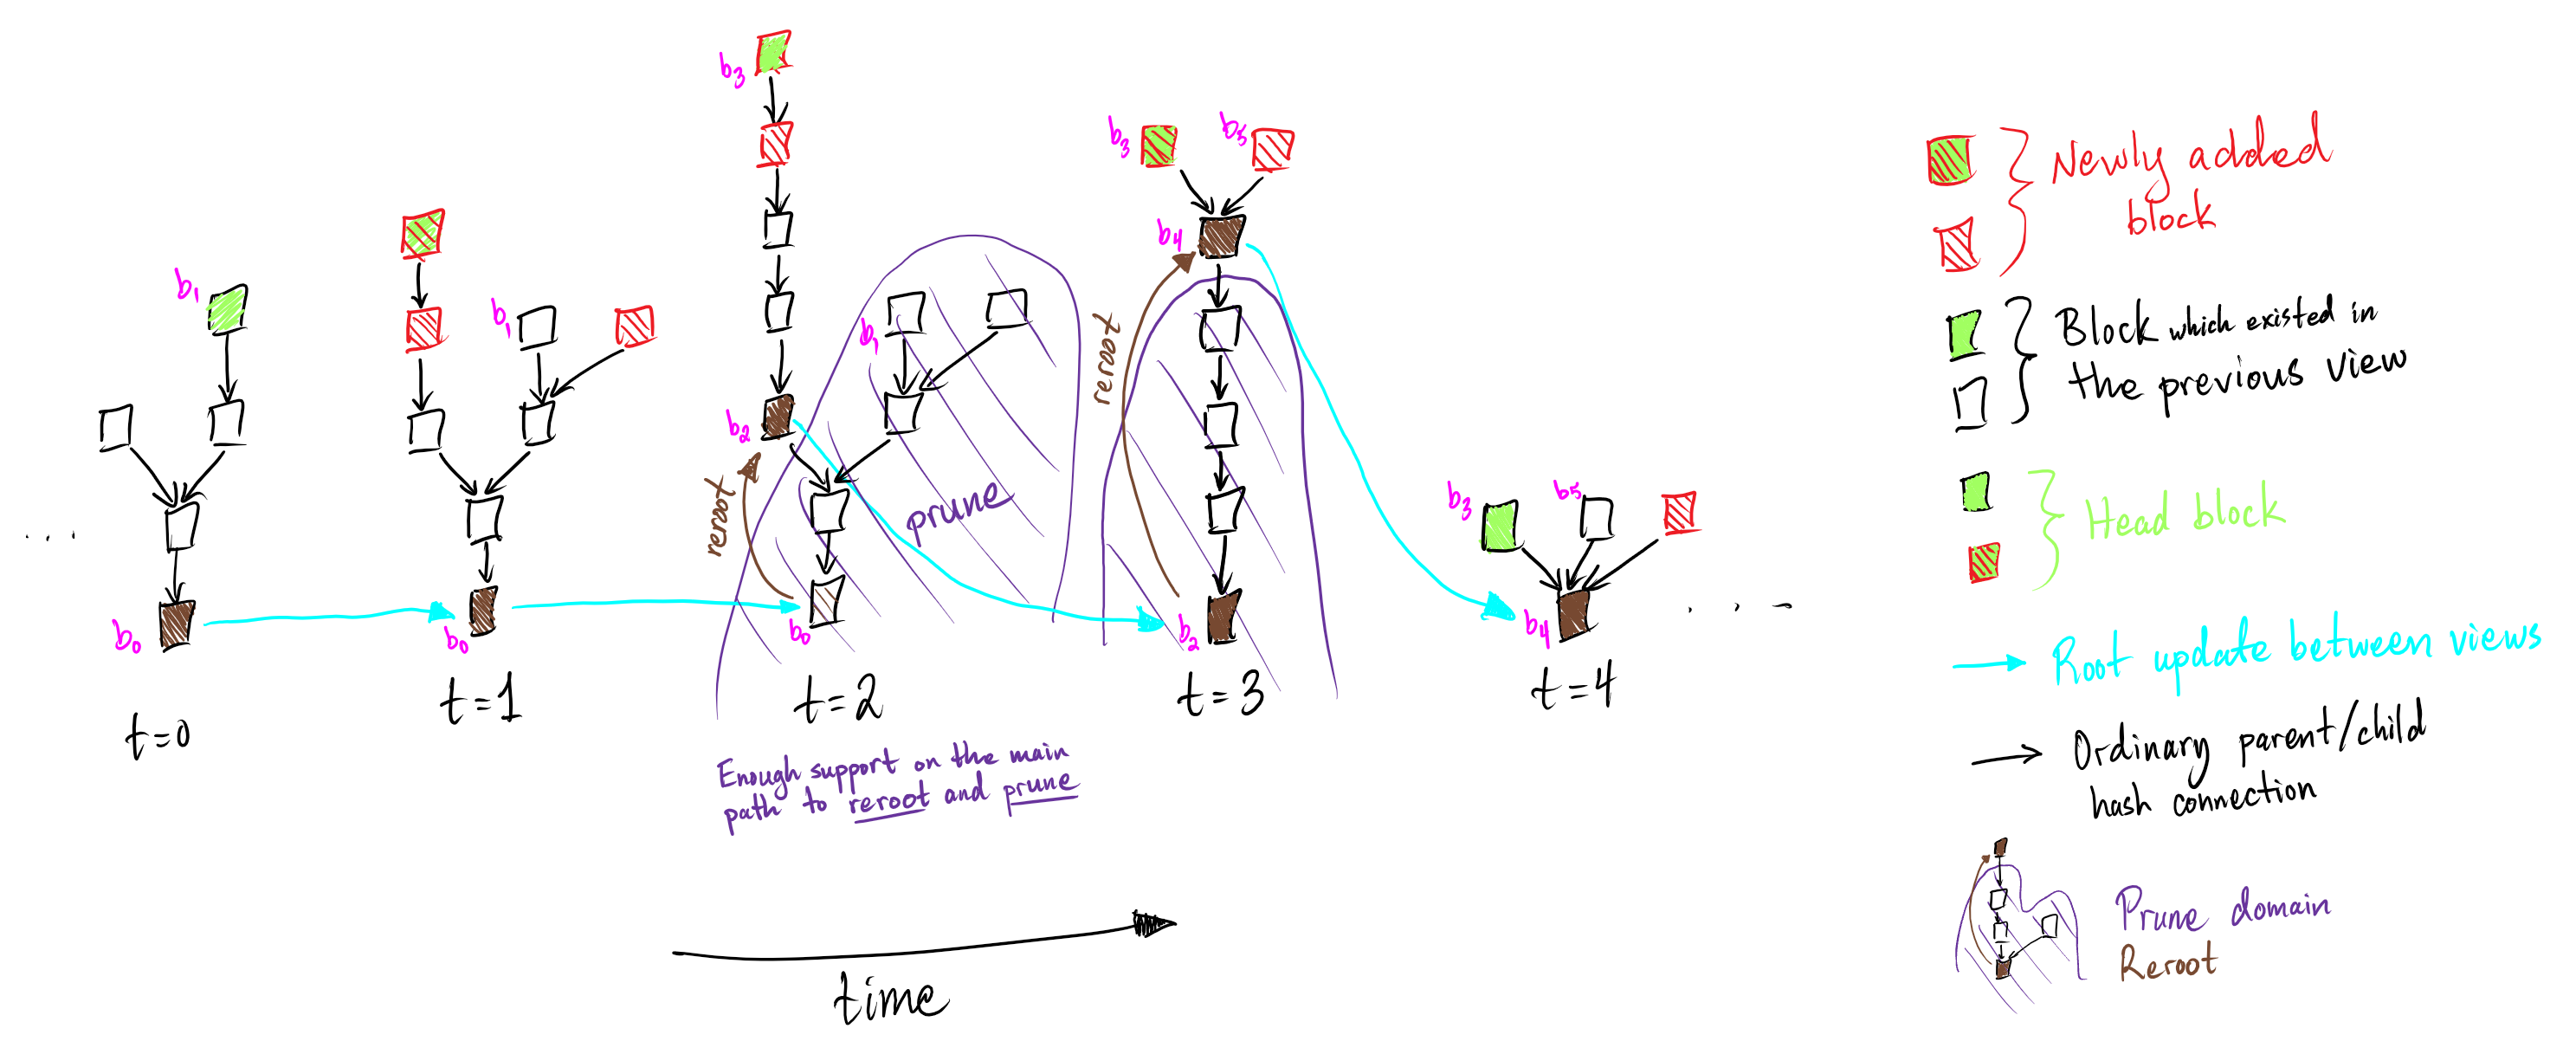 b1
...
b0
t=0
b1
b0
t=1
b3
b2
reroot
b1
prune
b0
t=2
Enough support on the main
path to reroot and prune
b3
b5
b4
reroot
b2
t=3
b3
b5
b4
t=4
...
time
Newly added
block
Block which existed in
the previous view
Head block
Root update between views
Ordinary parent/child
hash connection
Prune domain
Reroot